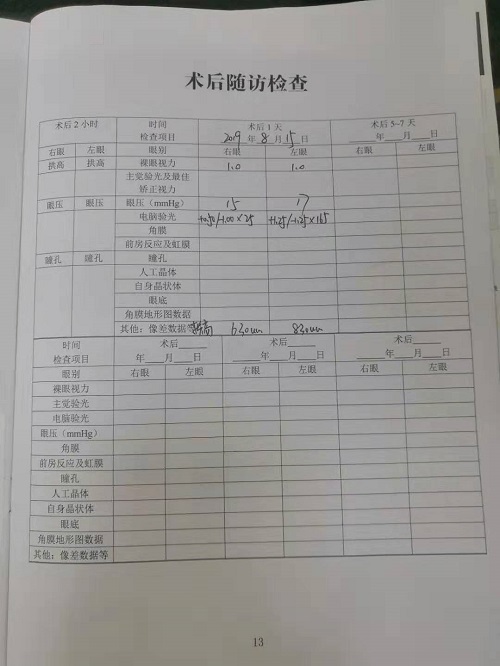 术后随访检查
术后2小时 时间 术后1天 术后3~7天
检查项目 2019年8月15日 年 月 日
右眼 左眼 眼别 右眼 左眼 右眼 左眼
拱高 拱高 裸眼视力 1.0 1.0
主觉验光及最佳
矫正视力
眼压 眼压 眼压(mmHg) 15 17
电脑验光 +0.50/-1.00×25 +1.25/-1.25×165
角膜
前房反应及虹膜
瞳孔 瞳孔 瞳孔
人工晶体
自身晶状体
眼底
角膜地形图数据
其他:像差数据等 拱高 630um 830um
时间 术后 术后 术后
检查项目 年 月 日 年 月 日 年 月 日
眼别 右眼 左眼 右眼 左眼 右眼 左眼
裸眼视力
主觉验光
电脑验光
眼压(mmHg)
角膜
前房反应及虹膜
瞳孔
人工晶体
自身晶状体
眼底
角膜地形图数据
其他:像差数据等
13